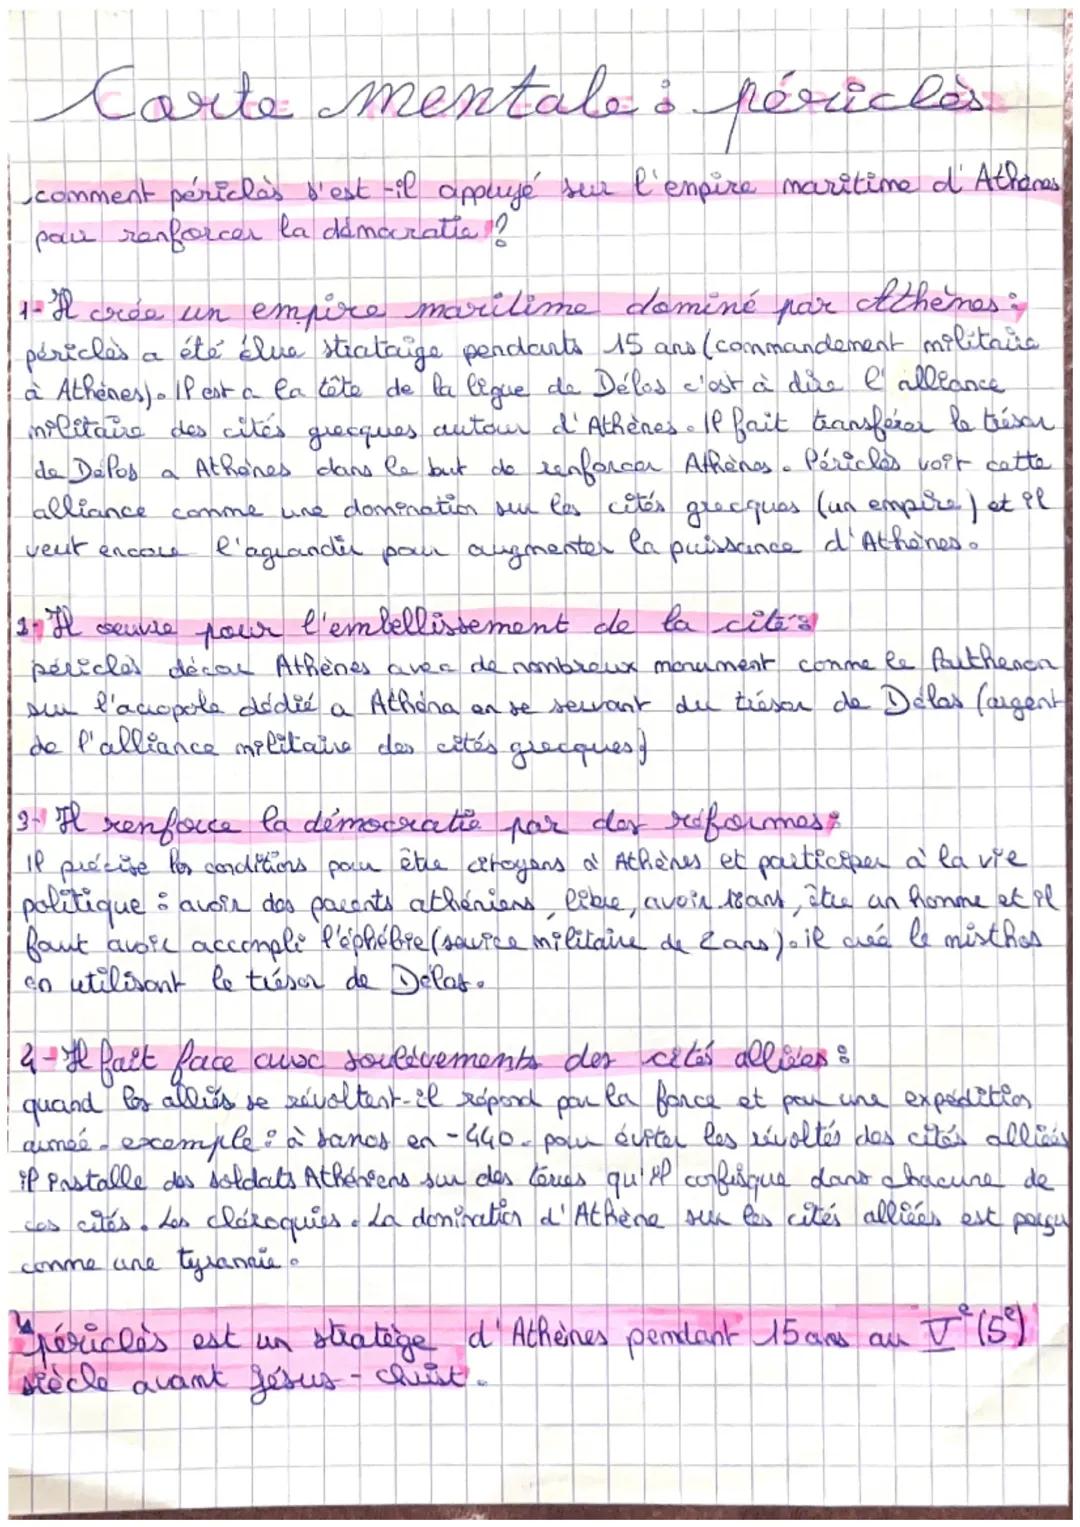 Carte mentale : périclès
comment périclès s'est-il appuyé sur l'empire maritime d'Athènes
pour renforcer la démocratie ?
1- Il crée un empire maritime dominé par Athènes :
périclès a été élue strataige pendants 15 ans (commandement militaire
à Athènes). Il est a la tête de la ligue de Délos c'est à dire l'alliance
militaire des cités grecques autour d'Athènes. Il fait transférer le trésor
de Délos a Athènes dans le but de renforcer Athènes. Périclès voit cette
alliance comme une domination sur les cités grecques (un empire) et il
veut encore l'agrandir pour augmenter la puissance d'Athènes.
2- Il oeuvre pour l'embellissement de la cité :
périclès décor Athènes avec de nombreux monument comme le Parthenon
sur l'acropole dédié a Athéna en se servant du trésor de Délos (argent
de l'alliance militaire des cités grecques)
3- Il renforce la démocratie par des réformes :
Il précise les conditions pour être citoyens à Athènes et participer à la vie
politique : avoir des parents athéniens, libre, avoir 18 ans, être un homme et il
faut avoir accompli l'éphébie (service militaire de 2 ans). il créé le misthos
en utilisant le trésor de Délos.
4- Il fait face aux soulévements des cités alliées :
quand les alliés se révoltent-il répond par la force et par une expédition
armée. excemple : à samos en -440. pour éviter les révoltés des cités alliées
il installe des soldats Athéniens sur des terres qu'il confisque dans chacune de
ces cités. Les cléroquies. La domination d'Athène sur les cités alliées est perçu
comme une tyrannie.
périclès est un stratège d'Athènes pendant 15 ans au Ve (5e)
siècle avant Jésus-Christ.